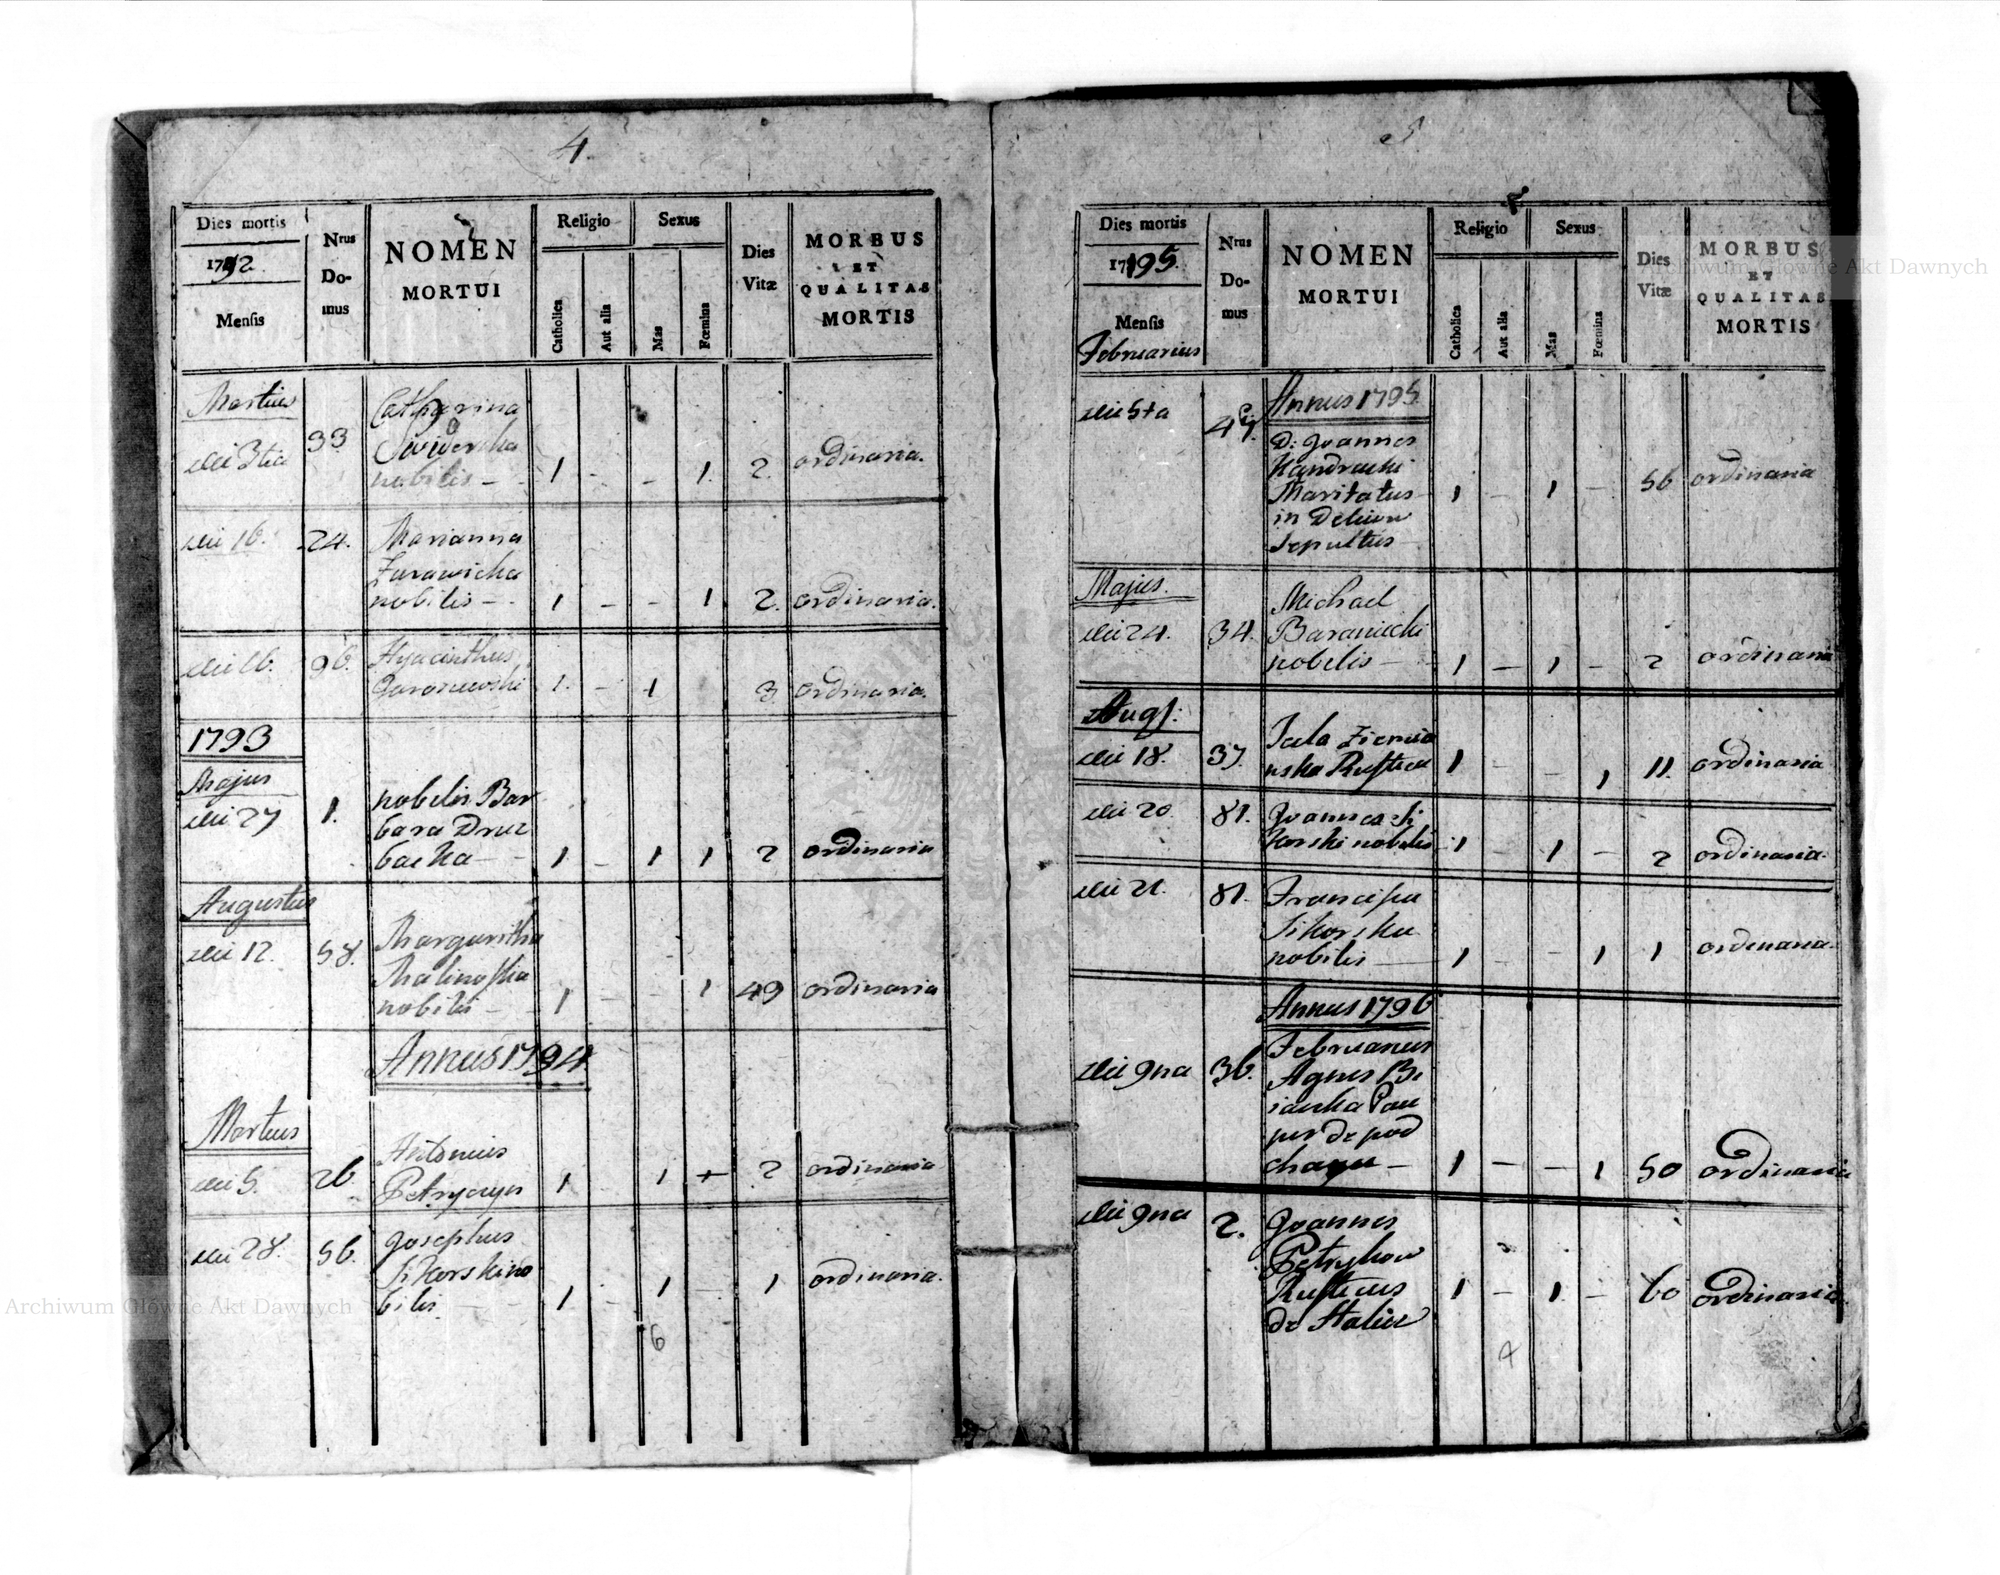 4.
Dies mortis
1792.
Mensis
Nrus
Do-
mus
NOMEN
MORTUI
Religio
Catholica
Aut alia
Sexus
Mas
Fœmina
Dies
Vitæ
MORBUS
ET
QUALITAS
MORTIS
Martius
die 3tia 33.
Catharina
Swiderska
nobilis – 1 - - 1. 2. ordinaria.
die 16. 24. Marianna
Zurawicka
nobilis – 1 - - 1 2. ordinaria.
die 26. 96. Hyacinthus
1. - 1 3 ordinaria.
1793
Majus
die 27 1. nobilis Bar
bara Druz
backa – 1 - 1 1 2 ordinaria
Augustus
die 12. 58. Margaritha
nobilis – 1 - - 1 49 ordinaria
Annus 1794
Martius
die 5. 26. Antonius
1 1 + 2 ordinaria
die 28. 56. Josephus
Sikorski no
bilis 1 - 1 - 1 ordinaria.
6
5
Dies mortis
1795.
Mensis
Februarius
Nrus
Do-
mus
NOMEN
MORTUI
Religio
Catholica
Aut alia
Sexus
Mas
Fœmina
Dies
Vitæ
MORBUS
ET
QUALITAS
MORTIS
Annus 1795
die 5ta
D: Joannes
Maritatus 1 - 1 - 56 ordinaria
in
Sepultus
Majus.
die 24. 34. Michael
Baraniecki
nobilis – 1 – 1 – 2 ordinaria
Augs:
die 18. 37. Tecla Ziemia
nska Rustica 1 - - 1 11. ordinaria
die 20. 81. Joannes Si
korski nobilis 1 - 1 – 2 ordinaria.
die 21. 81. Francisca
Sikorska
nobilis – 1 - - 1 1 ordinaria.
Annus 1796
Februarius
die 9na 36. Agnes Bi
Pau
per de pod
1 – – 1 50 ordinaria
die 9na 2. Joannes
Petrykow
Rusticus 1 – 1 – 60 ordinaria.
de
Archiwum Główne Akt Dawnych
Archiwum Główne Akt Dawnych